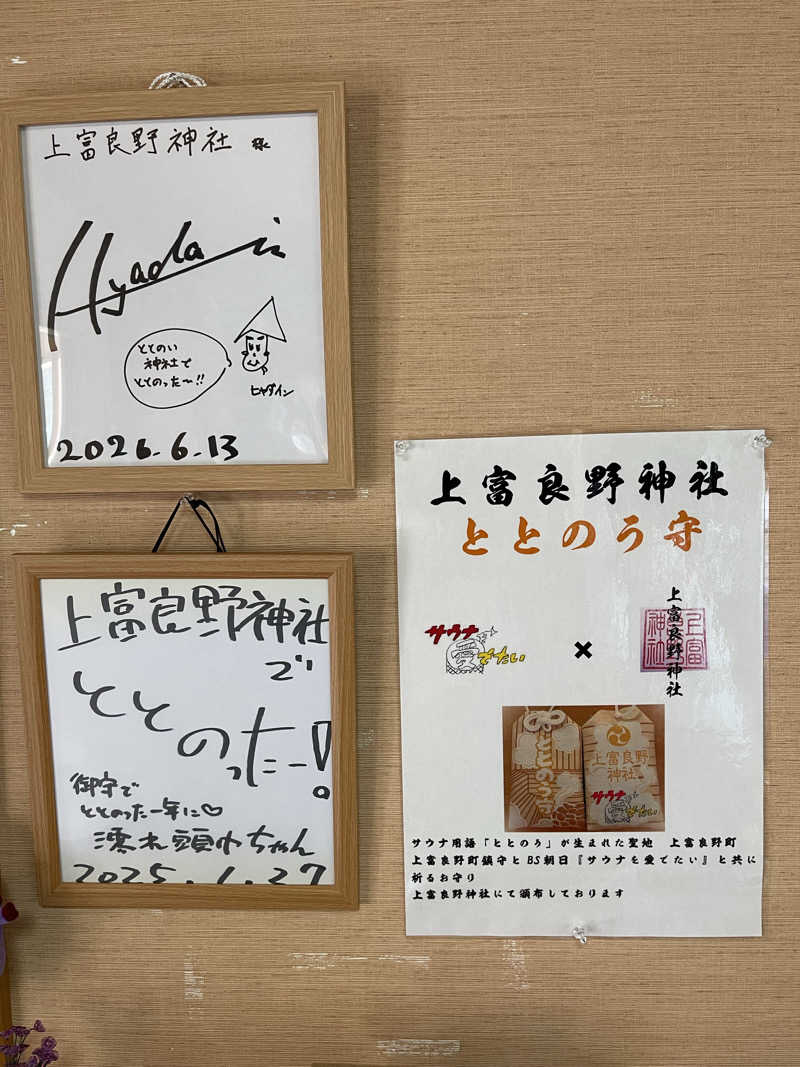 上富良野神社 様
Hyadain
ととのい
神社で
ととのった〜!!
ヒャダイン
2026.6.13
上富良野神社
で
ととのったー!
御守で
ととのった一年に♡
濡れ頭巾ちゃん
2025.1.27
上富良野神社
ととのう守
サウナ
愛でたい
×
上富良野神社
上富
神社
ととのう
上富良野
神社
サウナ
愛でたい
サウナ用語「ととのう」が生まれた聖地 上富良野町
上富良野町鎮守とBS朝日『サウナを愛でたい』と共に
祈るお守り
上富良野神社にて頒布しております